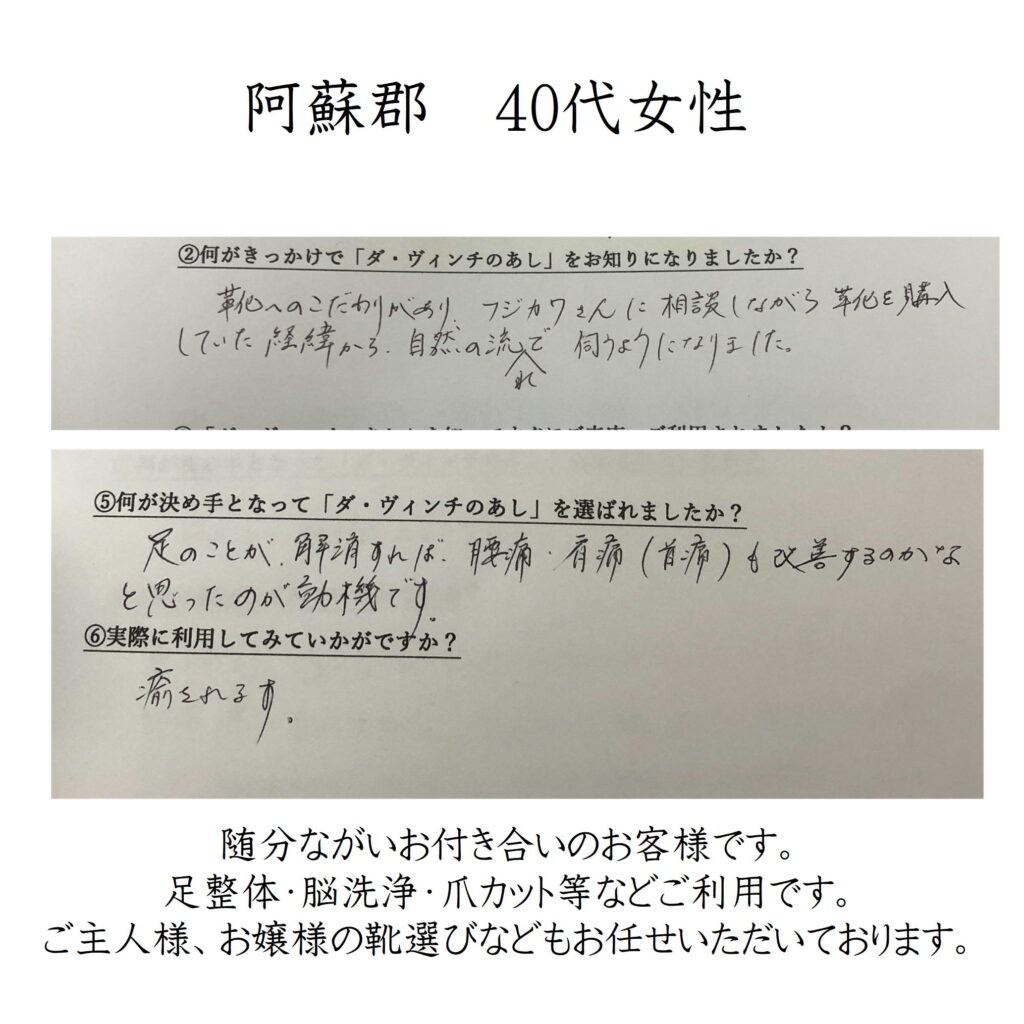 阿蘇郡 40代女性
②何がきっかけで「ダ・ヴィンチのあし」をお知りになりましたか?
靴へのこだわりがあり、フジカワさんに相談しながら靴を購入
していた経緯から、自然の流れで伺うようになりました。
⑤何が決め手となって「ダ・ヴィンチのあし」を選ばれましたか?
足のことが、解消すれば、腰痛・肩痛(首痛)も改善するのかな
と思ったのが動機です。
⑥実際に利用してみていかがですか?
癒されます。
随分ながいお付き合いのお客様です。
足整体・脳洗浄・爪カット等などご利用です。
ご主人様、お嬢様の靴選びなどもお任せいただいております。